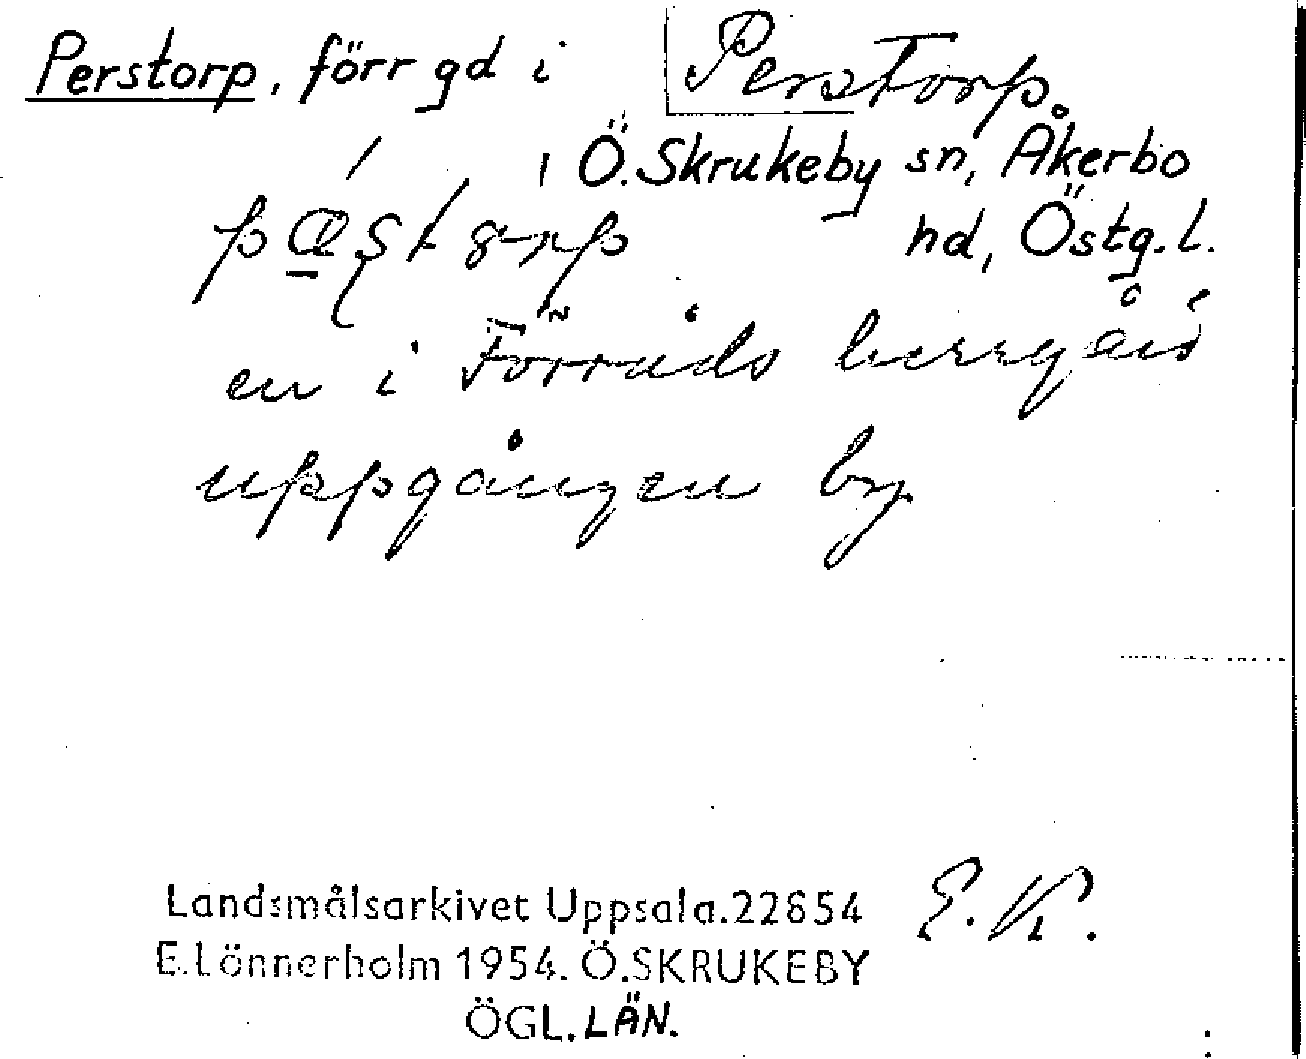 Perstorp, förr gd i Perstorp.
Ö. Skrukeby sn, Åkerbo
hd, Östg. l.
en i Förråds herrgård
uppgången by
Landsmålsarkivet Uppsala. 22654 E. K.
E. Lönnerholm 1954. Ö. SKRUKEBY
ÖGL. LÄN.